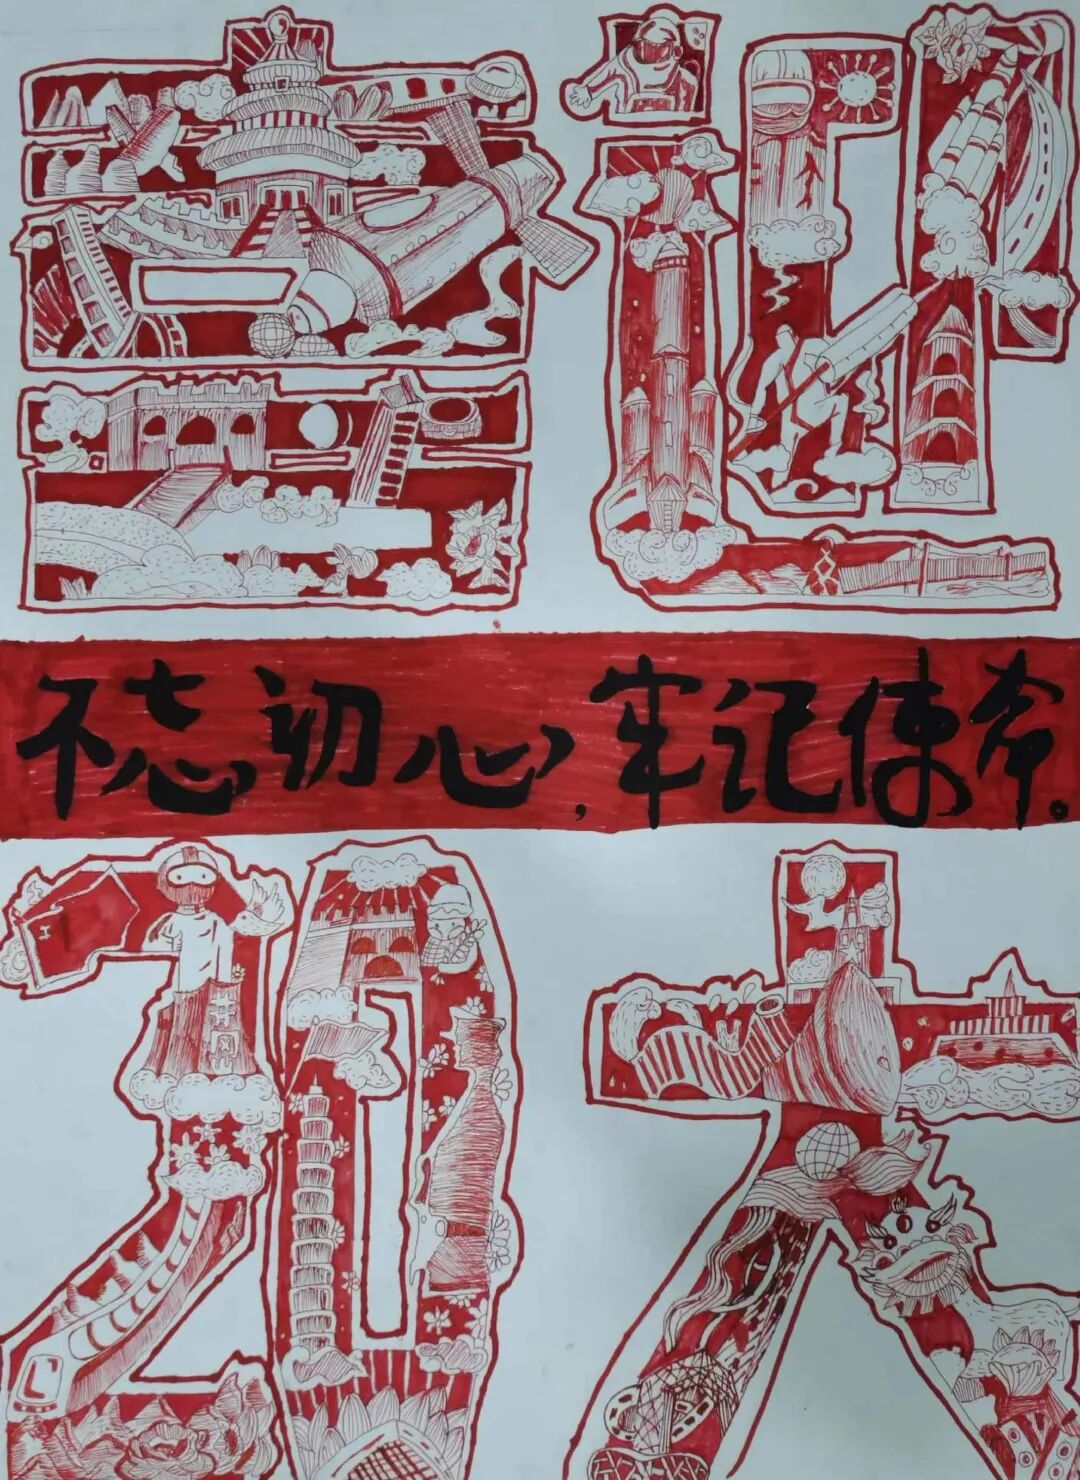 喜迎
不忘初心,牢记使命。
20大